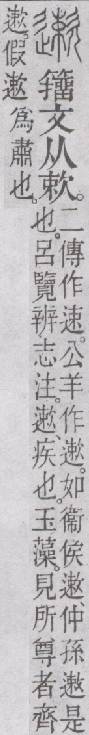 遬籒文从欶。二傳作速。公羊作遬。如衞侯遬仲孫遬是
也。呂覽辨志注。遬疾也。玉藻。見所尊者齊
遬。假遬爲肅也。